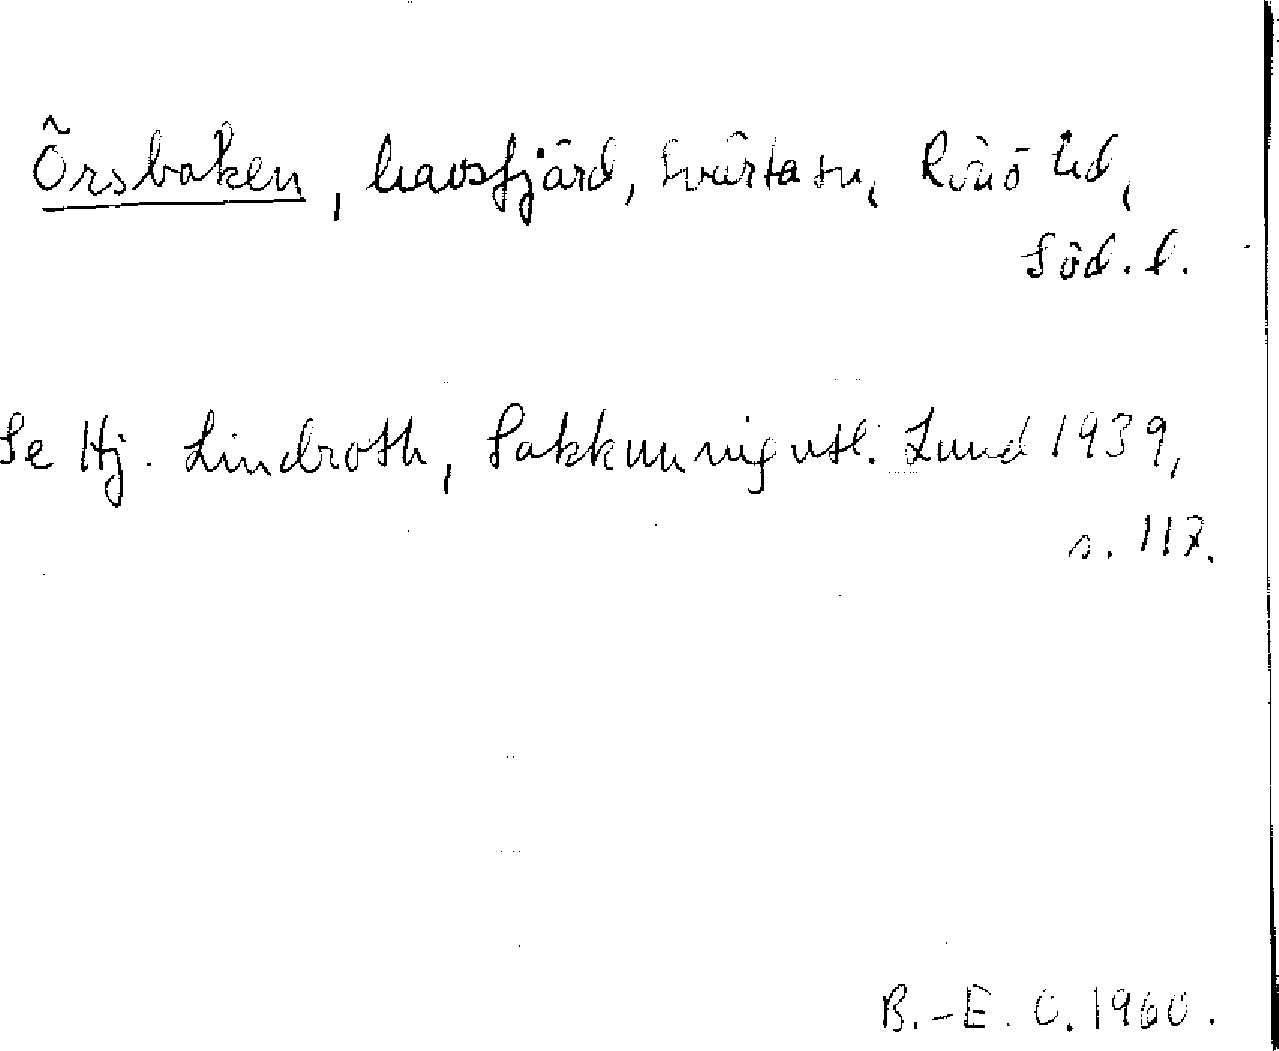 Örsbaken, havsfjärd, Svärta sn, Rönö hd,
Söd. l.
Se Hj. Lindroth, Sakkunnigutl. Lund 1939,
s. 117.
B.-E. O. 1960.